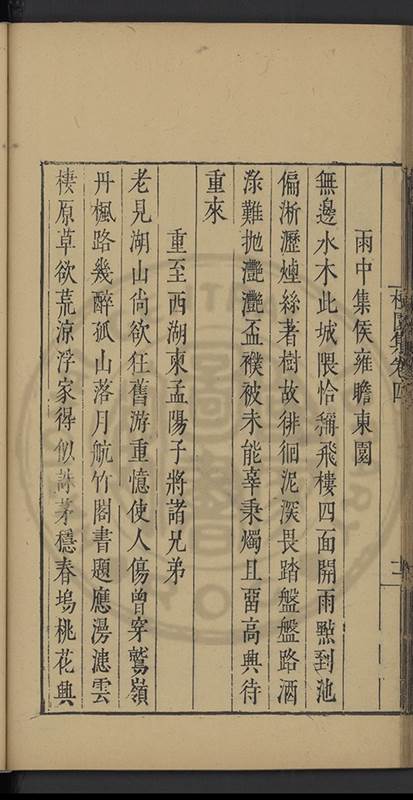 雨中集侯雍瞻東園
無邊水木此城隈恰稱飛樓四面開雨點到池
偏淅瀝煙絲著樹故徘徊泥深畏踏盤盤路酒
淥難拋灧灧盃襆被未能辜秉燭且留高興待
重來
重至西湖柬孟陽子將諸兄弟
老見湖山尚欲狂舊游重憶使人傷曾穿鷲嶺
丹楓路幾醉孤山落月航竹閣書題應漫漶雲
棲原草欲荒涼浮家得似誅茅穩春塢桃花興
集卷四
二